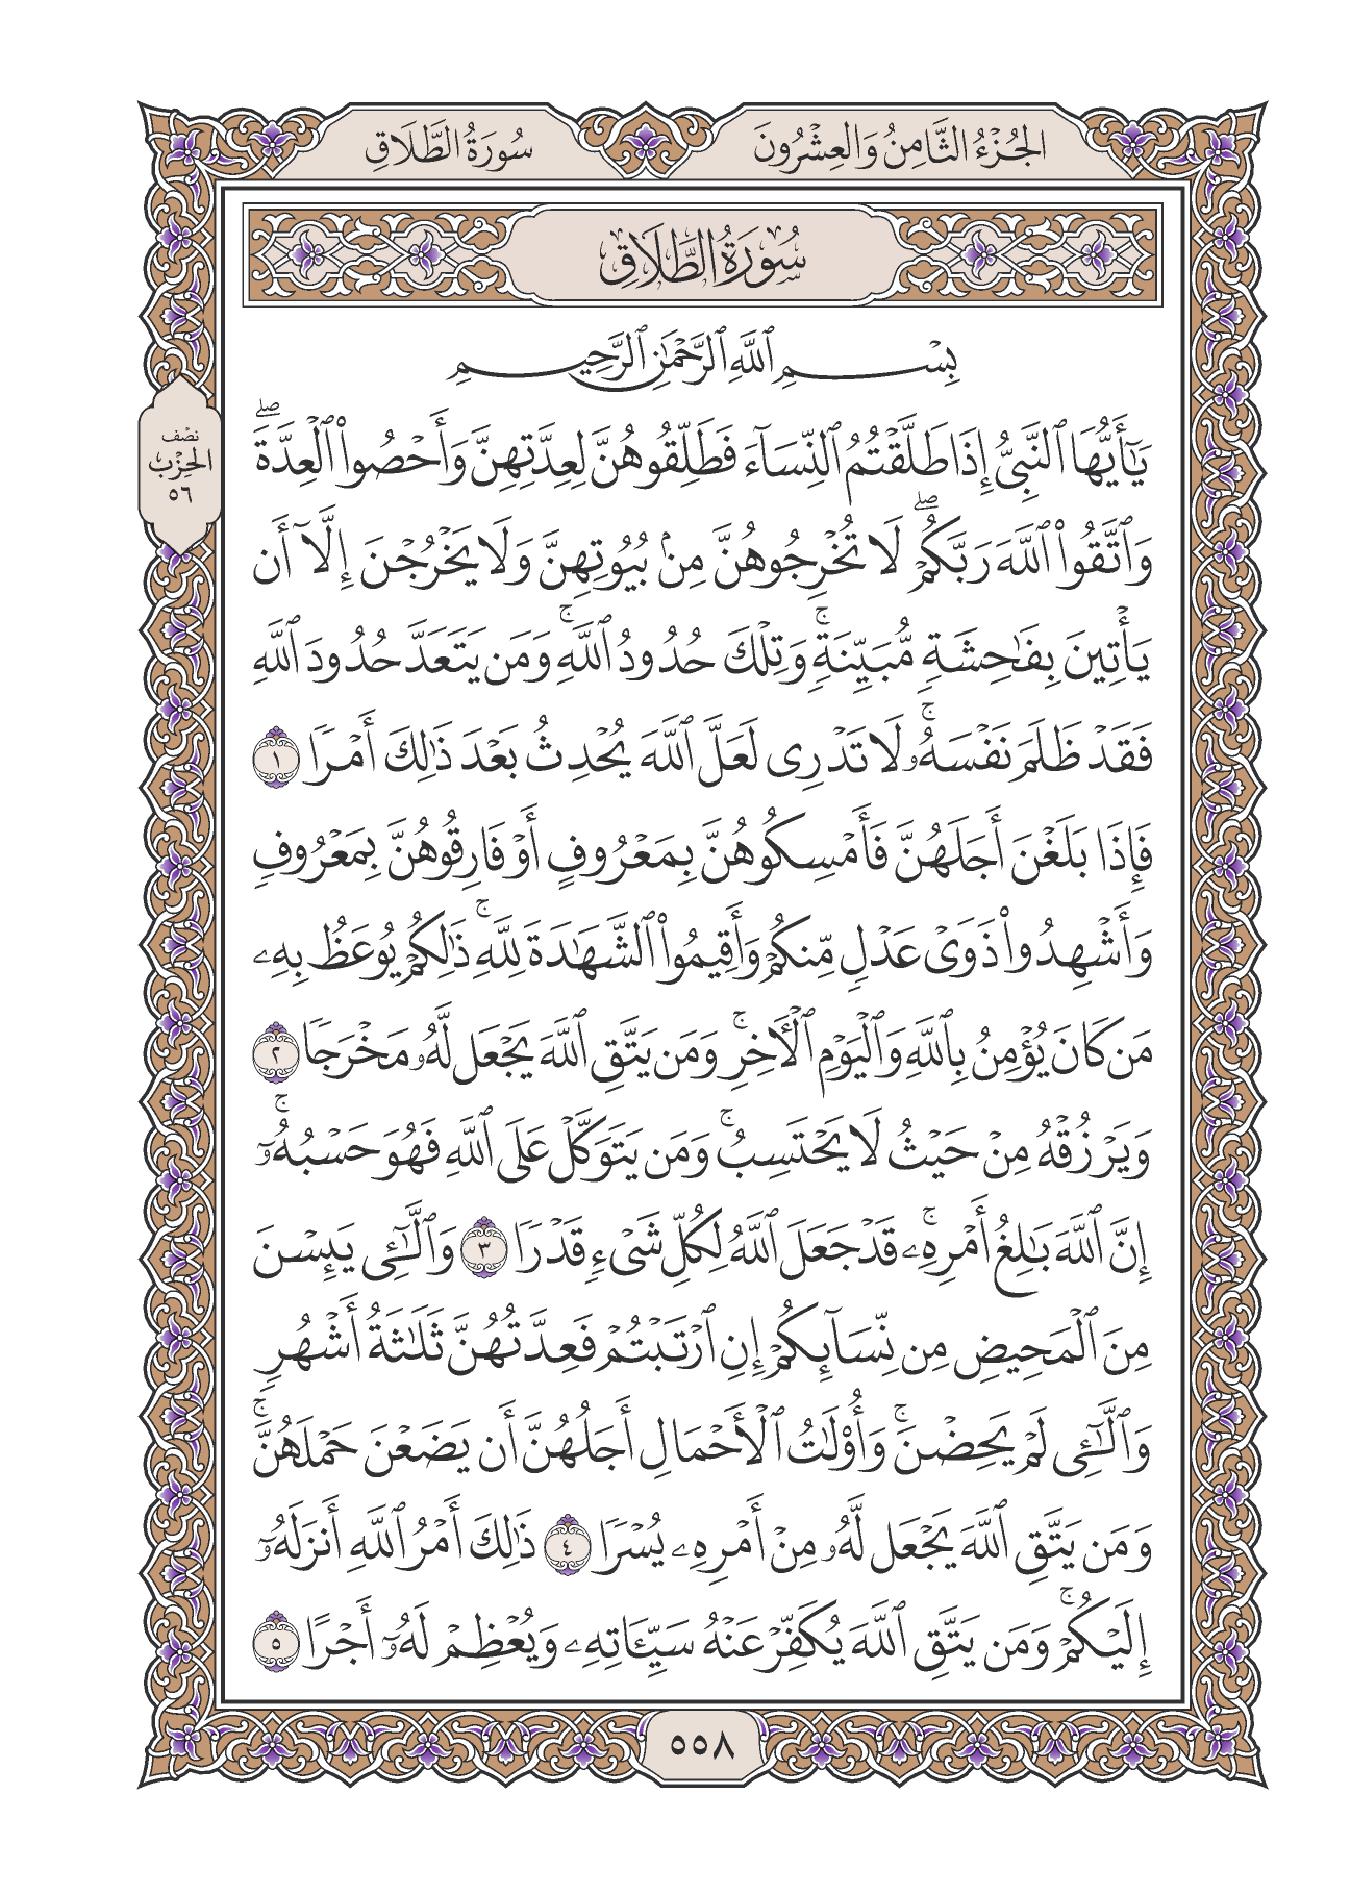 الجُزْءُ الثَّامِنُ وَالعِشْرُونَ
سُورَةُ الطَّلَاقِ
سُورَةُ الطَّلَاقِ
بِسْمِ ٱللَّهِ ٱلرَّحْمَٰنِ ٱلرَّحِيمِ
يَٰٓأَيُّهَا ٱلنَّبِىُّ إِذَا طَلَّقْتُمُ ٱلنِّسَآءَ فَطَلِّقُوهُنَّ لِعِدَّتِهِنَّ وَأَحْصُوا۟ ٱلْعِدَّةَۖ
وَٱتَّقُوا۟ ٱللَّهَ رَبَّكُمْۖ لَا تُخْرِجُوهُنَّ مِنۢ بُيُوتِهِنَّ وَلَا يَخْرُجْنَ إِلَّآ أَن
يَأْتِينَ بِفَٰحِشَةٍ مُّبَيِّنَةٍۚ وَتِلْكَ حُدُودُ ٱللَّهِۚ وَمَن يَتَعَدَّ حُدُودَ ٱللَّهِ
فَقَدْ ظَلَمَ نَفْسَهُۥۚ لَا تَدْرِى لَعَلَّ ٱللَّهَ يُحْدِثُ بَعْدَ ذَٰلِكَ أَمْرًا ١
فَإِذَا بَلَغْنَ أَجَلَهُنَّ فَأَمْسِكُوهُنَّ بِمَعْرُوفٍ أَوْ فَارِقُوهُنَّ بِمَعْرُوفٍ
وَأَشْهِدُوا۟ ذَوَىْ عَدْلٍ مِّنكُمْ وَأَقِيمُوا۟ ٱلشَّهَٰدَةَ لِلَّهِۚ ذَٰلِكُمْ يُوعَظُ بِهِۦ
مَن كَانَ يُؤْمِنُ بِٱللَّهِ وَٱلْيَوْمِ ٱلْءَاخِرِۚ وَمَن يَتَّقِ ٱللَّهَ يَجْعَل لَّهُۥ مَخْرَجًا ٢
وَيَرْزُقْهُ مِنْ حَيْثُ لَا يَحْتَسِبُۚ وَمَن يَتَوَكَّلْ عَلَى ٱللَّهِ فَهُوَ حَسْبُهُۥٓۚ
إِنَّ ٱللَّهَ بَٰلِغُ أَمْرِهِۦۚ قَدْ جَعَلَ ٱللَّهُ لِكُلِّ شَىْءٍ قَدْرًا ٣ وَٱلَّٰٓـِٔى يَئِسْنَ
مِنَ ٱلْمَحِيضِ مِن نِّسَآئِكُمْ إِنِ ٱرْتَبْتُمْ فَعِدَّتُهُنَّ ثَلَٰثَةُ أَشْهُرٍ
وَٱلَّٰٓـِٔى لَمْ يَحِضْنَۚ وَأُو۟لَٰتُ ٱلْأَحْمَالِ أَجَلُهُنَّ أَن يَضَعْنَ حَمْلَهُنَّۚ
وَمَن يَتَّقِ ٱللَّهَ يَجْعَل لَّهُۥ مِنْ أَمْرِهِۦ يُسْرًا ٤ ذَٰلِكَ أَمْرُ ٱللَّهِ أَنزَلَهُۥٓ
إِلَيْكُمْۚ وَمَن يَتَّقِ ٱللَّهَ يُكَفِّرْ عَنْهُ سَيِّـَٔاتِهِۦ وَيُعْظِمْ لَهُۥٓ أَجْرًا ٥
نصف
الحِزْب
٥٦
٥٥٨